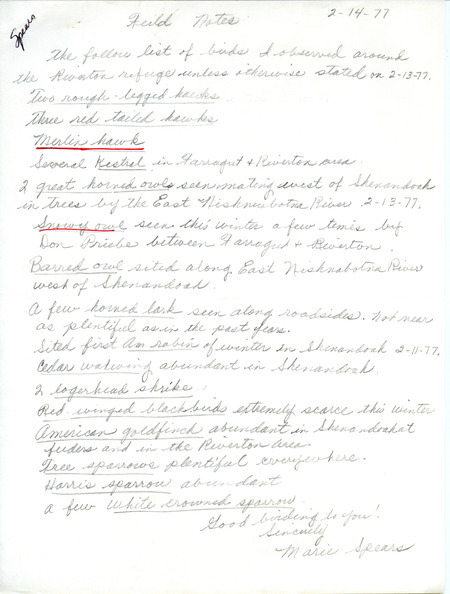 Spears
Feild Notes
2-14-77
The follow list of birds I observed around
the Riverton refuge unless otherwise stated on 2-13-77.
Two rough-legged hawks
Three red tailed hawks
Merlin hawk
Several Kestral in Farragut & Riverton area.
2 great horned owls seen mating west of Shenandoah
in trees by the East Nishnabotna River. 2-13-77.
Snowy owl seen this winter a few temis by
Don Priebe between Farragut & Riverton.
Barred owl sited along East Nishnabotna River
west of Shenandoah.
A few horned lark seen along roadsides. Not near
as plentiful as in the past years.
Sited first Am robin of winter in Shenandoah 2-11-77.
Cedar waxwing abundant in Shenandoah.
2 logerhead shrike.
Red winged blackbirds extremely scarce this winter
American goldfinch abundant in Shenandoah at
feeders and in the Riverton area.
Tree sparrows plentiful everywhere.
Harris sparrow abundant
a few white crowned sparrow.
Good birding to you!
Sincerily
Marie Spears